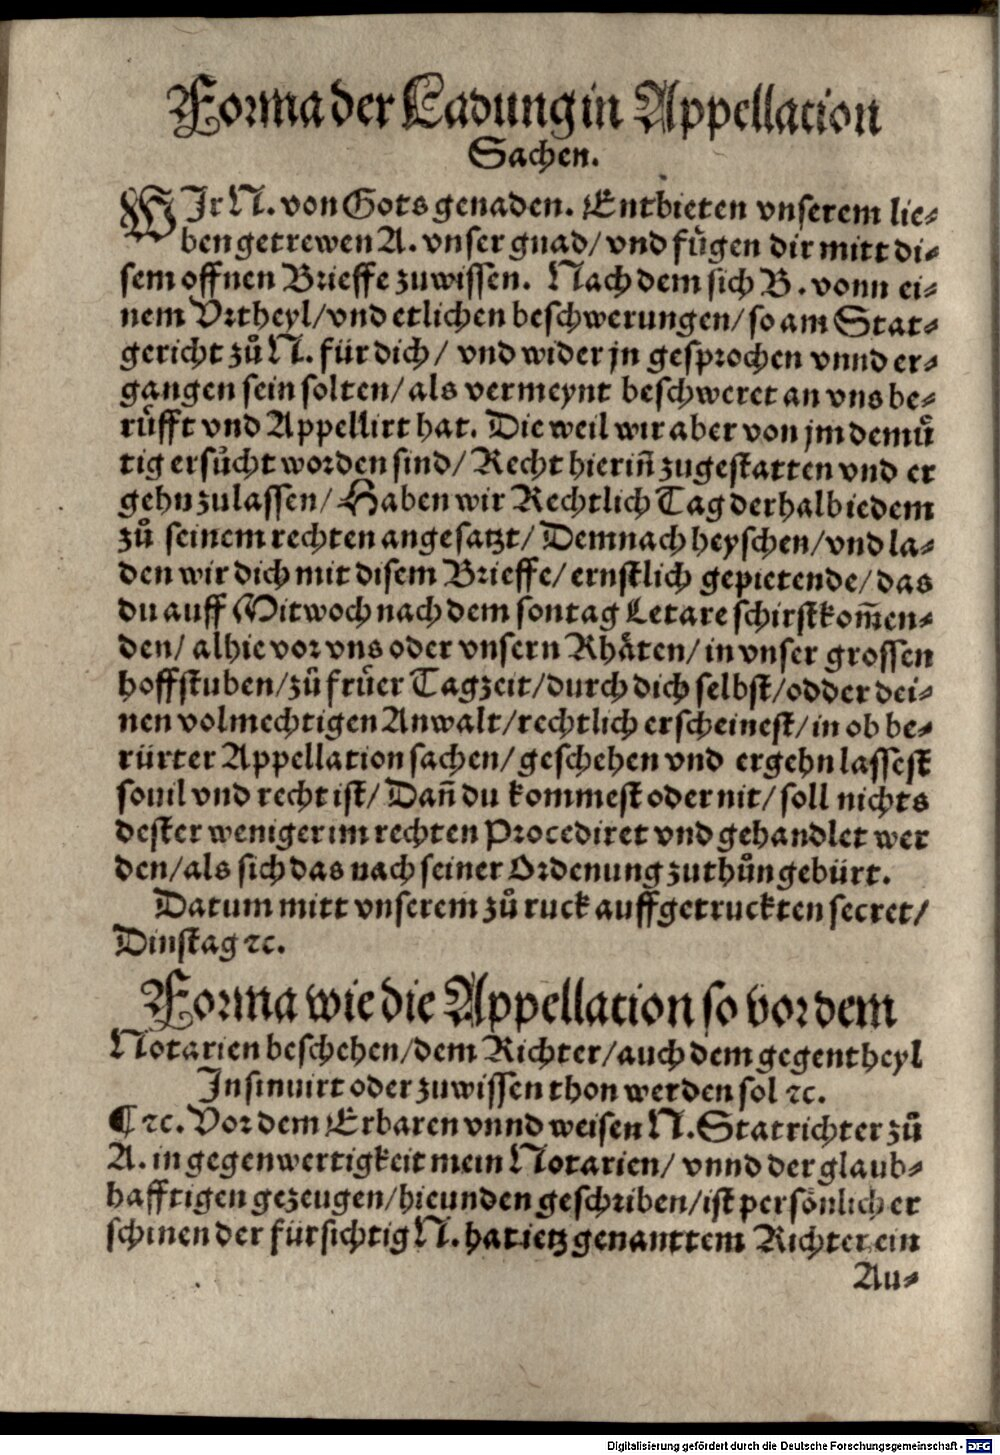 Forma der Ladung in Appellation
Sachen.
WIr N. von Gots genaden. Entbieten vnserem lie⸗
ben getrewen A. vnser gnad/ vnd fuͤgen dir mitt di⸗
sem offnen Brieffe zuwissen. Nach dem sich B. vonn ei⸗
nem Vrtheyl/ vnd etlichen beschwerungen/ so am Stat⸗
gericht zuͦ N. für dich/ vnd wider jn gesprochen vnnd er⸗
gangen sein solten/ als vermeynt beschweret an vns be⸗
ruͤfft vnd Appellirt hat. Die weil wir aber von jm demuͤ
tig ersuͦcht worden sind/ Recht hierin̄ zugestatten vnd er
gehn zulassen/ Haben wir Rechtlich Tag derhalb iedem
zuͦ seinem rechten angesatzt/ Demnach heyschen/ vnd la⸗
den wir dich mit disem Brieffe/ ernstlich gepietende/ das
du auff Mitwoch nach dem sontag Letare schirstkom̄en⸗
den/ alhie vor vns oder vnsern Rhaͤten/ in vnser grossen
hoffstuben/ zuͦ fruͤer Tagzeit/ durch dich selbst/ odder dei⸗
nen volmechtigen Anwalt/ rechtlich erscheinest/ in ob be⸗
ruͤrter Appellation sachen/ geschehen vnd ergehn lassest
souil vnd recht ist/ Dan̄ du kommest oder nit/ soll nichts
dester weniger im rechten Procediret vnd gehandlet wer
den/ als sich das nach seiner Ordenung zuthuͦn gebürt.
Datum mitt vnserem zuͦ ruck auffgetruckten secret/
Dinstag ꝛc.
Forma wie die Appellation so vor dem
Notarien beschehen/ dem Richter/ auch dem gegentheyl
Insinuirt oder zuwissen thon werden sol ꝛc.
¶ ꝛc. Vor dem Erbaren vnnd weisen N. Statrichter zuͦ
A. in gegenwertigkeit mein Notarien/ vnnd der glaub⸗
hafftigen gezeugen/ hieunden geschriben/ ist persoͤnlich er
schinen der fürsichtig N. hat ietz genanttem Richter ein
An⸗
Digitalisierung gefördert durch die Deutsche Forschungsgemeinschaft - DFG